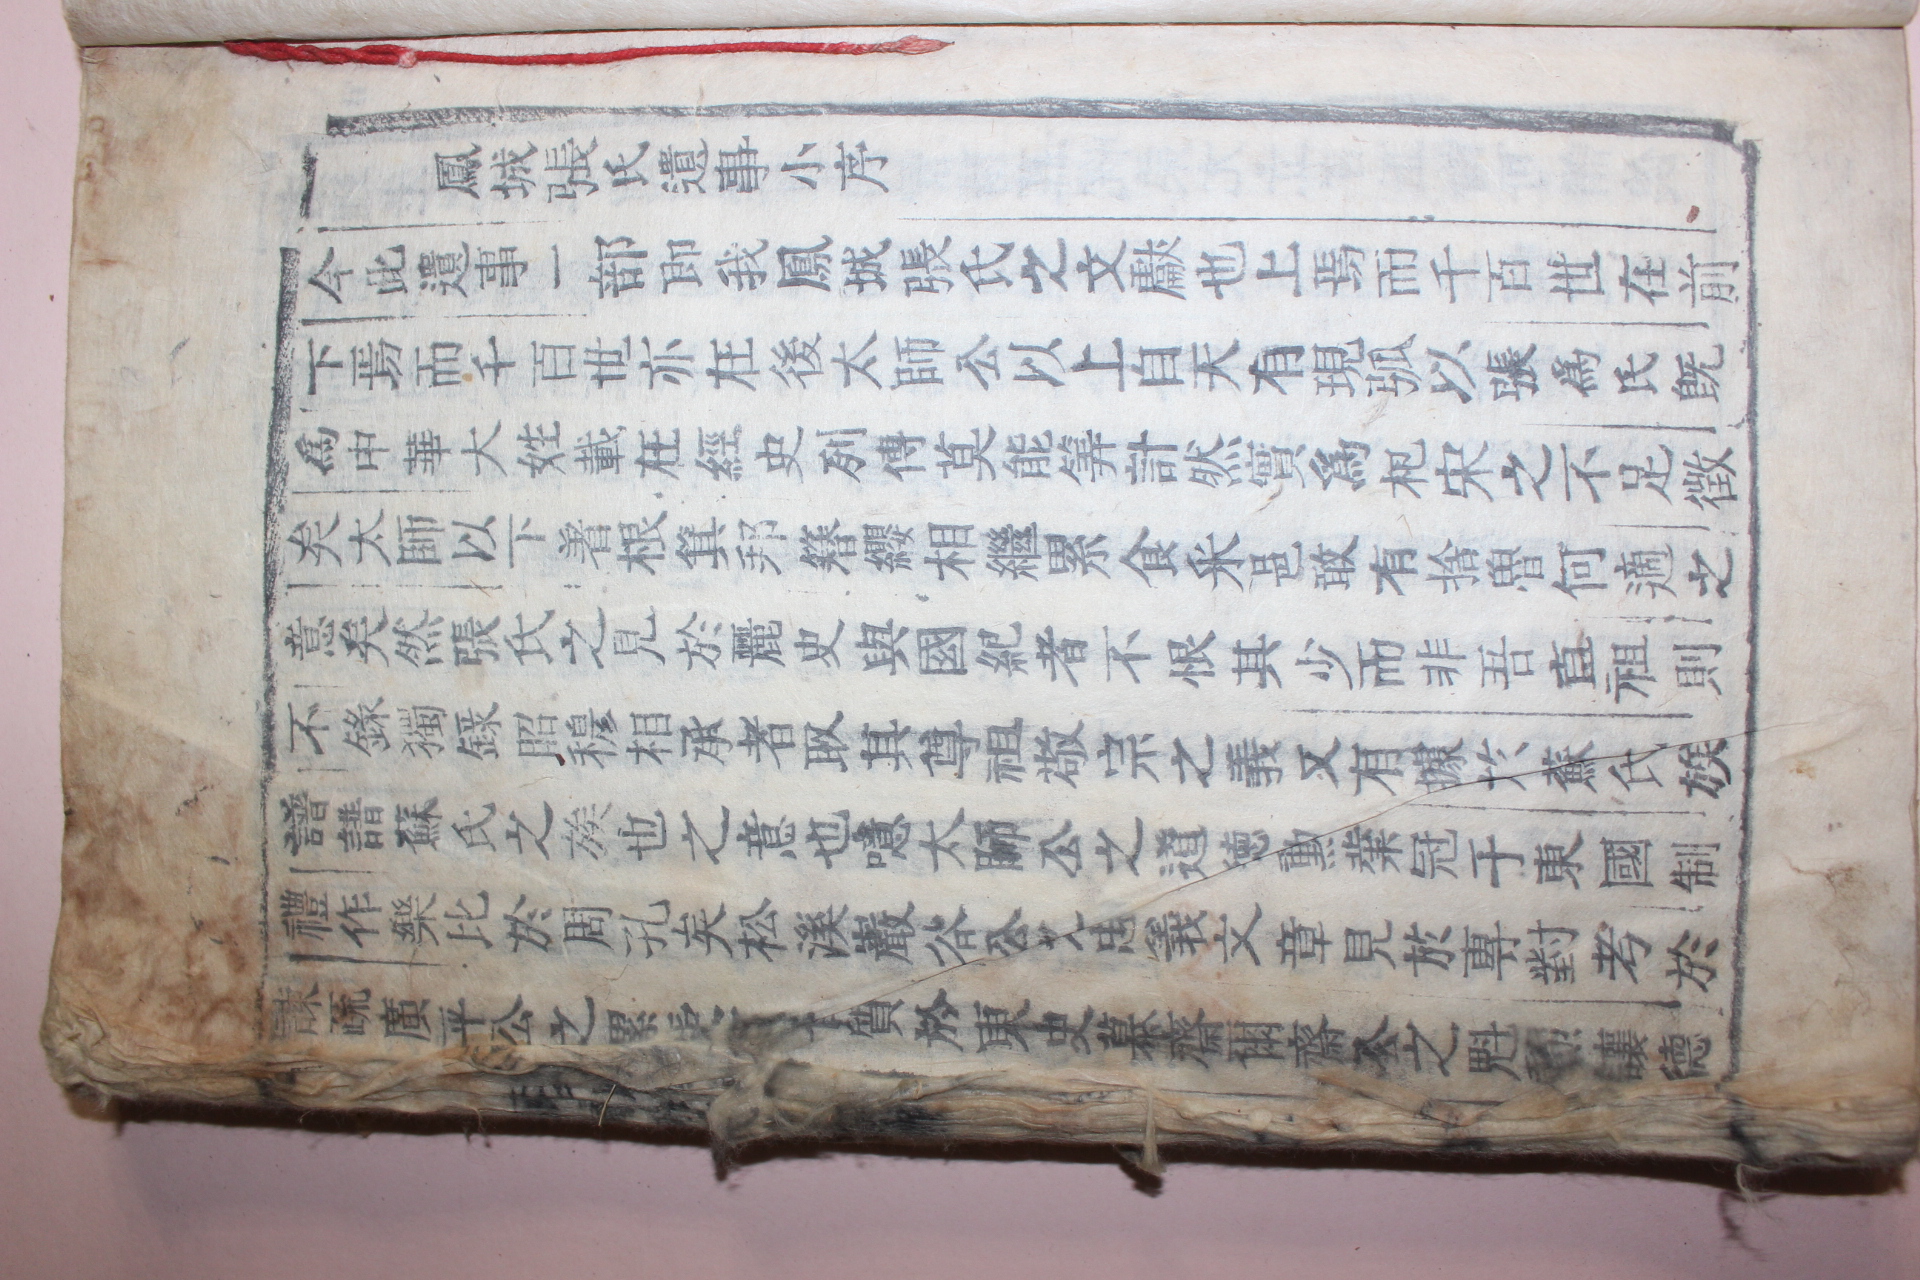 鳳城張氏遺事小序
今此遺事一部即我鳳城張氏之文獻也上焉而千百世在前
下焉而千百世亦在後太師公以上自天有現弧以張爲氏旣
爲中華大姓載在經史列傳莫能筭計然實爲杞宋之不足徵
矣太師以下著根箕邦簪纓相繼累食采邑敢有捨魯何適之
意矣然張氏之見於麗史與國紀者不恨其少而非吾直祖則
不錄獨錄昭穆相承者取其尊祖敬宗之義又有據於蘇氏族
譜譜蘇氏之族也之意也噫太師公之道德勲業冠于東國制
禮作樂比於周孔矣松溪巖谷公之忠義文章見於專對考於
諫疏廣平公之累 質於東史慕齋爾齋公之魁 讓德